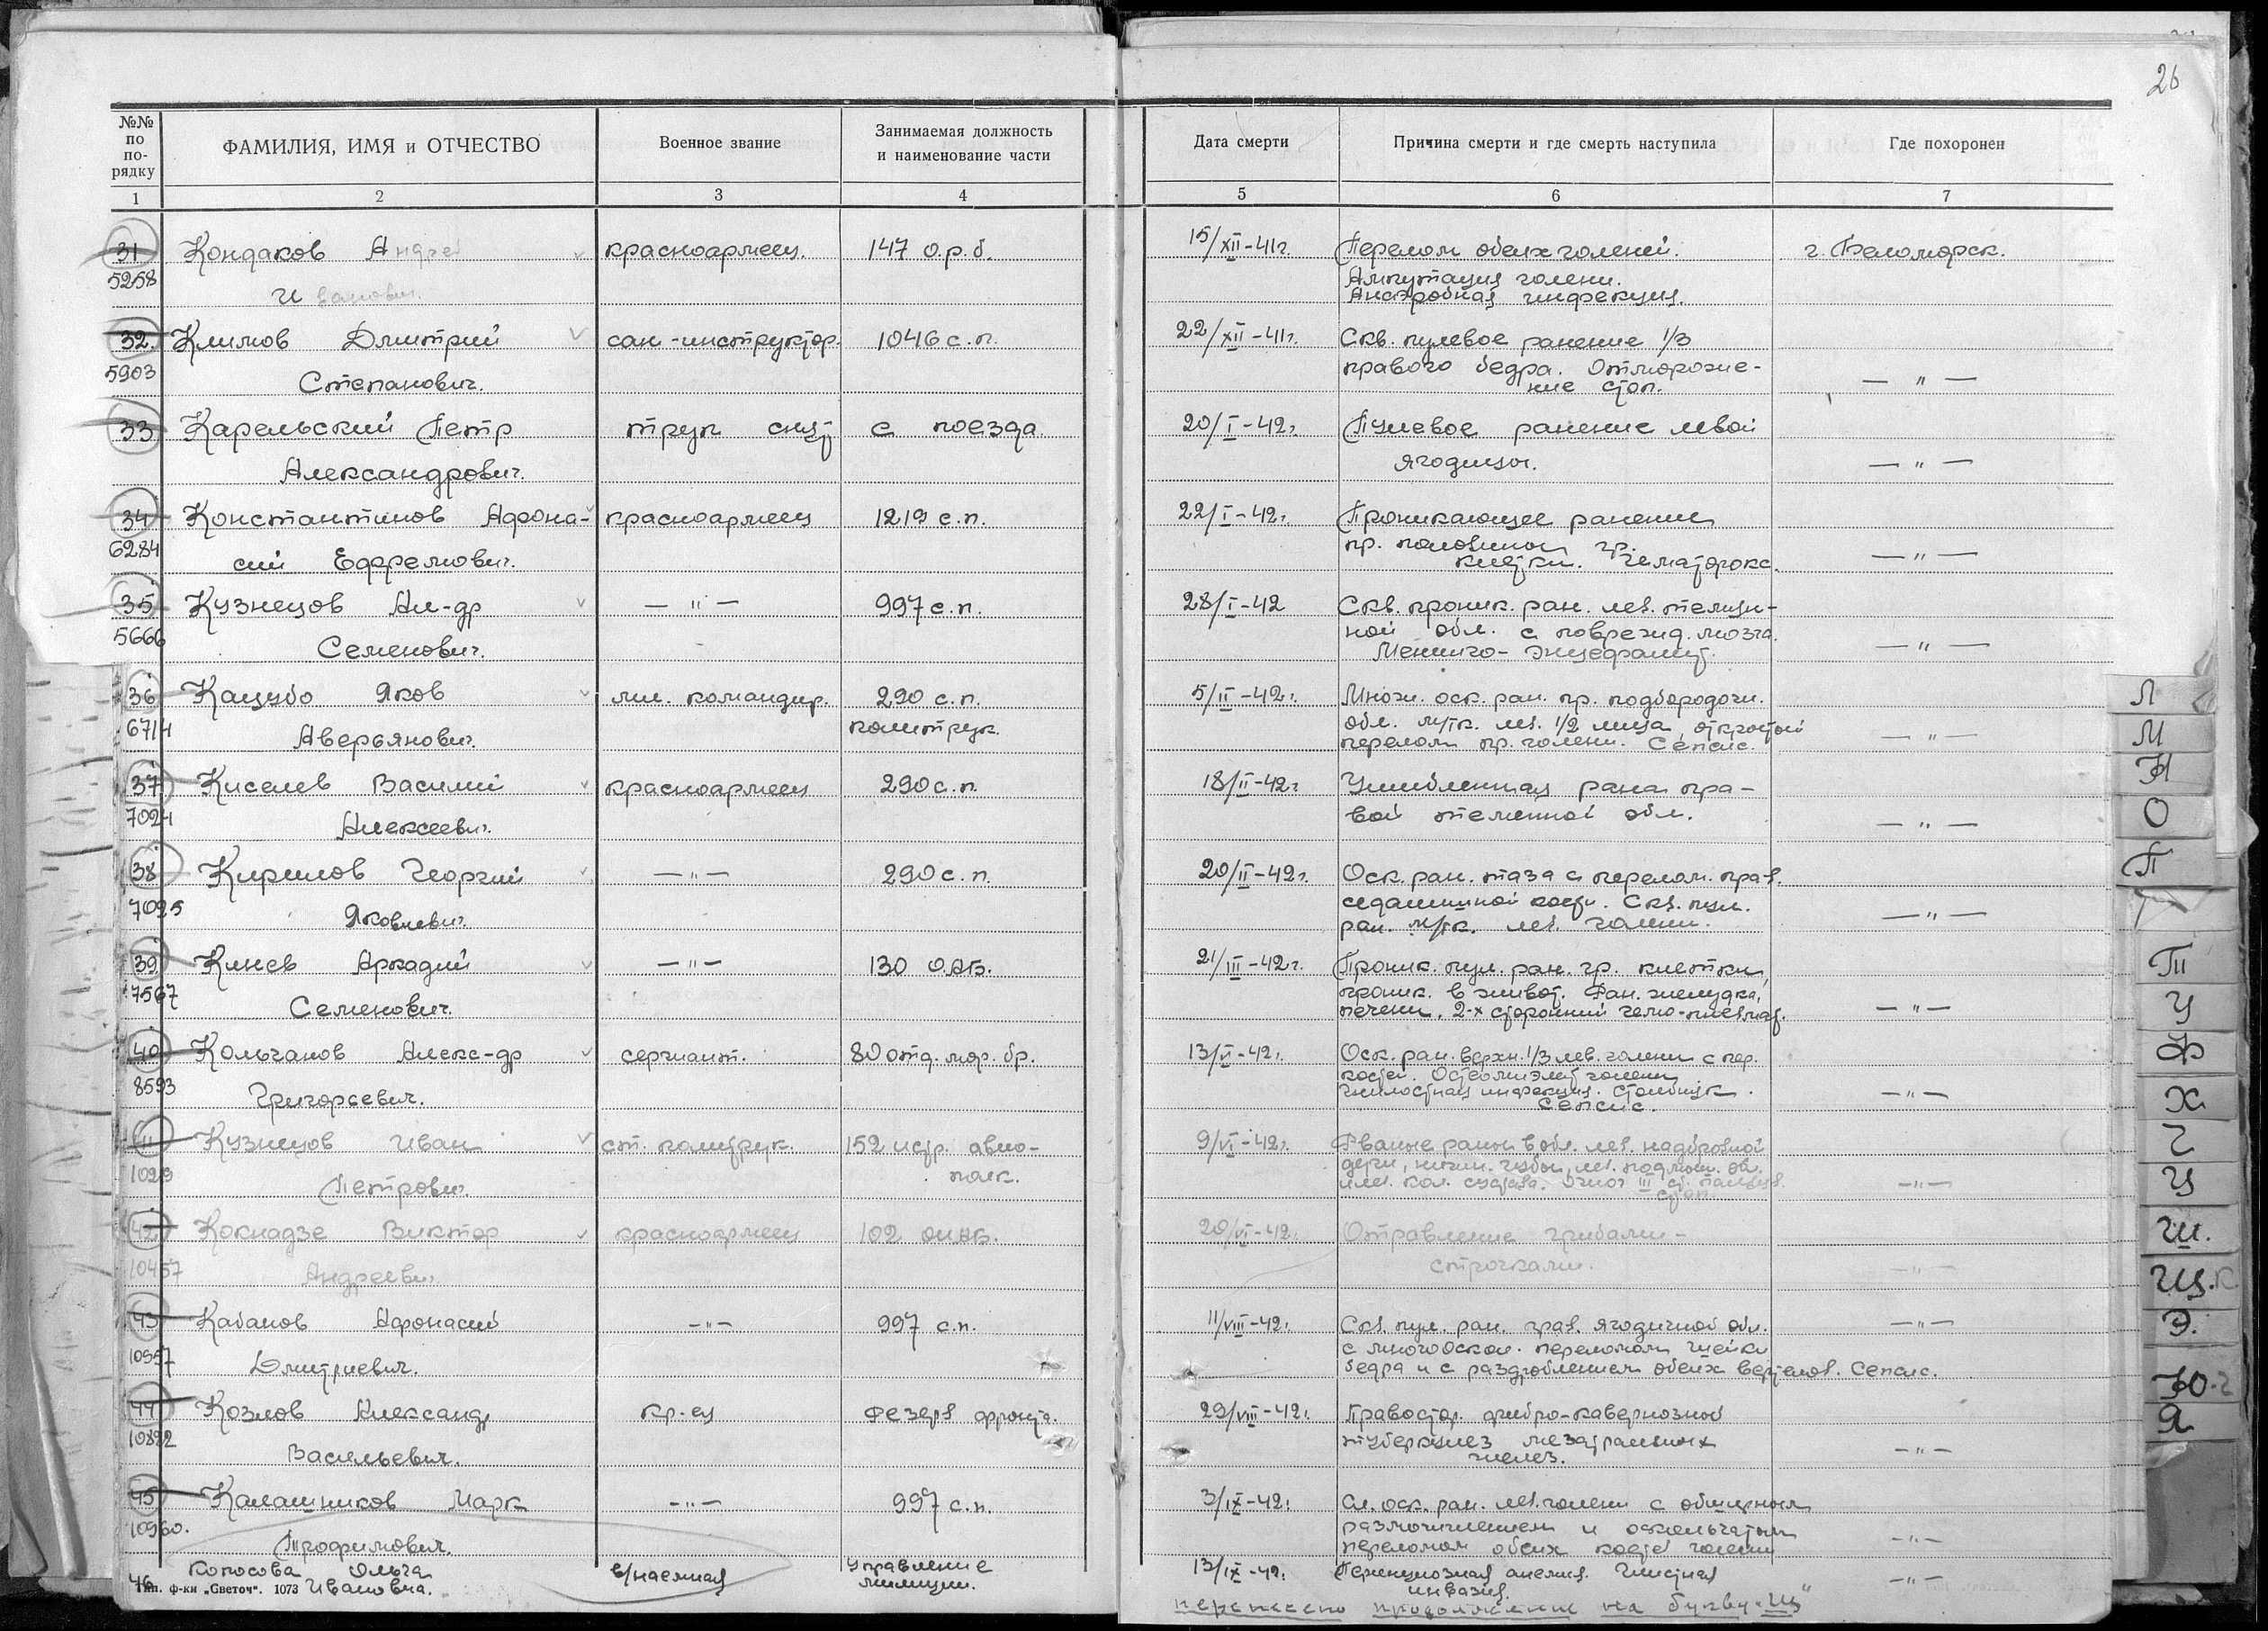 26
№№ по по-рядку
ФАМИЛИЯ, ИМЯ и ОТЧЕСТВО
Военное звание
Занимаемая должность и наименование части
Дата смерти
Причина смерти и где смерть наступила
Где похоронен
1 2 3 4 5 6 7
31 Кондаков Андрей красноармеец. 147 о.р.б. 15/XII-41г. Перелом обеих голеней. г. Беломорск.
5258 Иванович. Ампутация голени.
Анаэробная инфекция.
32. Климов Дмитрий сан-инструктор. 1046 с.п. 22/XII-41г. Скв. пулевое ранение 1/3
5903 Степанович. правого бедра. Отмороже-
ние стоп. — " —
33 Карельский Петр труп снят с поезда. 20/I-42г. Пулевое ранение левой
Александрович. ягодицы. — " —
34 Константинов Афона- красноармеец 1219 с.п. 22/I-42г. Проникающее ранение
6284 сий Ефремович. пр. половины гр.
клетки. Гематоракс. — " —
35 Кузнецов Ал-др — " — 997 с.п. 28/I-42 Скв. проник. ран. лев.
5666 Семенович. ной обл. с поврежд. мозга.
Менинго-энцефалит. — " —
36 Кацубо Яков мл. командир. 290 с.п. 5/II-42г. Множ. оск. ран. пр. подбородочн.
6714 Аверьянович. политрук. обл. м/тк. лев. 1/2 лица, открытый
перелом пр. голени. Сепсис. — " —
37 Киселев Василий красноармеец 290 с.п. 18/II-42г Ушибленная рана пра-
7024 Алексеевич. вой теменной обл. — " —
38 Кирилов Георгий — " — 290 с.п. 20/II-42г. Оск. ран. таза с перелом. прав.
7025 Яковлевич. седалищной кости. Скв. пул.
ран. м/тк. лев. голени. — " —
39 Клнев Аркадий — " — 130 ОАБ. 21/III-42г. Проник. пул. ран. гр. клетки,
7567 Семенович. проник. в живот. Ран. желудка,
печени, 2-х сторонний гемо-пневмат. — " —
40 Кольчанов Алекс-др сержант. 80 отд. мор. бр. 13/V-42г. Оск. ран. верхн. 1/3 лев. голени с пер.
8593 Григорьевич. костей. Остеомиэлит голени
гнилостная инфекция. Столбняк.
Сепсис. — " —
41 Кузнецов Иван ст. политрук. 152 истр. авио- 9/VI-42г. Рваные раны в обл. лев. надбровной
10219 Петрович. полк. дуги, нижн. губы, лев.
и лев. кол. сустава. Ожог III ст. пальцев
стоп. — " —
42 Кокнадзе Виктор красноармеец 102 ОИАБ. 20/VI-42г. Отравление грибами-
10457 Андреевич. строчками. — " —
43 Кабанов Афонасий — " — 997 с.п. 11/VIII-42г. Скв. пул. ран. прав. ягодичной обл. — " —
10957 Дмитриевич. с многооскол. переломом шейки
бедра и с раздроблением обеих вертелов. Сепсис.
44 Козлов Александр кр-ец Резерв фронта. 29/VIII-42г. Правостор. фибро-кавернозный
10892 Васильевич. туберкулез мезатральных
желез. — " —
45 Калашников Марк — " — 997 с.п. 3/IX-42г. Сл. оск. ран. лев. голени с обширным
10960. Трофимович. размозжением и оскольчатым
переломом обеих костей голени — " —
46 Копосова Ольга в/наемная Управление 13/IX-42г. Перницiозная анемия. Глистная
Тип. ф-ки „Светоч“. 1073 Ивановна. милиции. инвазия. — " —
перенесено продолжение на букву „Щ"
Л
М
Н
О
П
Т
У
Ф
Х
Ч
Ц
Ш.
Щ.К
Э.
Ю.
Я